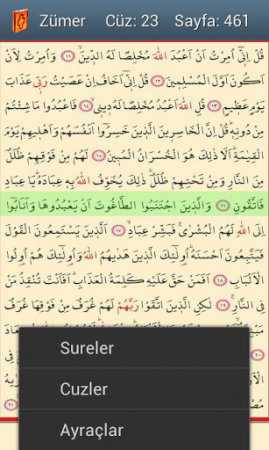 Zümer Cüz: 23 Sayfa: 461
قُلْ اِنّٖٓي اُمِرْتُ اَنْ اَعْبُدَ اللّٰهَ مُخْلِصًا لَهُ الدّٖينَۙ ﴿١١﴾ وَاُمِرْتُ لِاَنْ
اَكُونَ اَوَّلَ الْمُسْلِمٖينَ ﴿١٢﴾ قُلْ اِنّٖٓي اَخَافُ اِنْ عَصَيْتُ رَبّٖي عَذَابَ
يَوْمٍ عَظٖيمٍ ﴿١٣﴾ قُلِ اللّٰهَ اَعْبُدُ مُخْلِصًا لَهُ دٖينٖيۙ ﴿١٤﴾ فَاعْبُدُوا مَا شِئْتُمْ
مِنْ دُونِهٖۜ قُلْ اِنَّ الْخَاسِرٖينَ الَّذٖينَ خَسِرُٓوا اَنْفُسَهُمْ وَاَهْلٖيهِمْ يَوْمَ
الْقِيٰمَةِۜ اَلَا ذٰلِكَ هُوَ الْخُسْرَانُ الْمُبٖينُ ﴿١٥﴾ لَهُمْ مِنْ فَوْقِهِمْ ظُلَلٌ
مِنَ النَّارِ وَمِنْ تَحْتِهِمْ ظُلَلٌۜ ذٰلِكَ يُخَوِّفُ اللّٰهُ بِهٖ عِبَادَهُۜ يَا عِبَادِ
فَاتَّقُونِ ﴿١٦﴾ وَالَّذٖينَ اجْتَنَبُوا الطَّاغُوتَ اَنْ يَعْبُدُوهَا وَاَنَابُٓوا
اِلَى اللّٰهِ لَهُمُ الْبُشْرٰىۚ فَبَشِّرْ عِبَادِۙ ﴿١٧﴾ اَلَّذٖينَ يَسْتَمِعُونَ الْقَوْلَ
فَيَتَّبِعُونَ اَحْسَنَهُۜ اُو۬لٰٓئِكَ الَّذٖينَ هَدٰيهُمُ اللّٰهُ وَاُو۬لٰٓئِكَ هُمْ اُو۬لُوا
الْاَلْبَابِ ﴿١٨﴾ اَفَمَنْ حَقَّ عَلَيْهِ كَلِمَةُ الْعَذَابِۜ اَفَاَنْتَ تُنْقِذُ مَنْ
فِي النَّارِۚ ﴿١٩﴾ لٰكِنِ الَّذٖينَ اتَّقَوْا رَبَّهُمْ لَهُمْ غُرَفٌ مِنْ فَوْقِهَا غُرَفٌ
Sureler
Cuzler
Ayraçlar